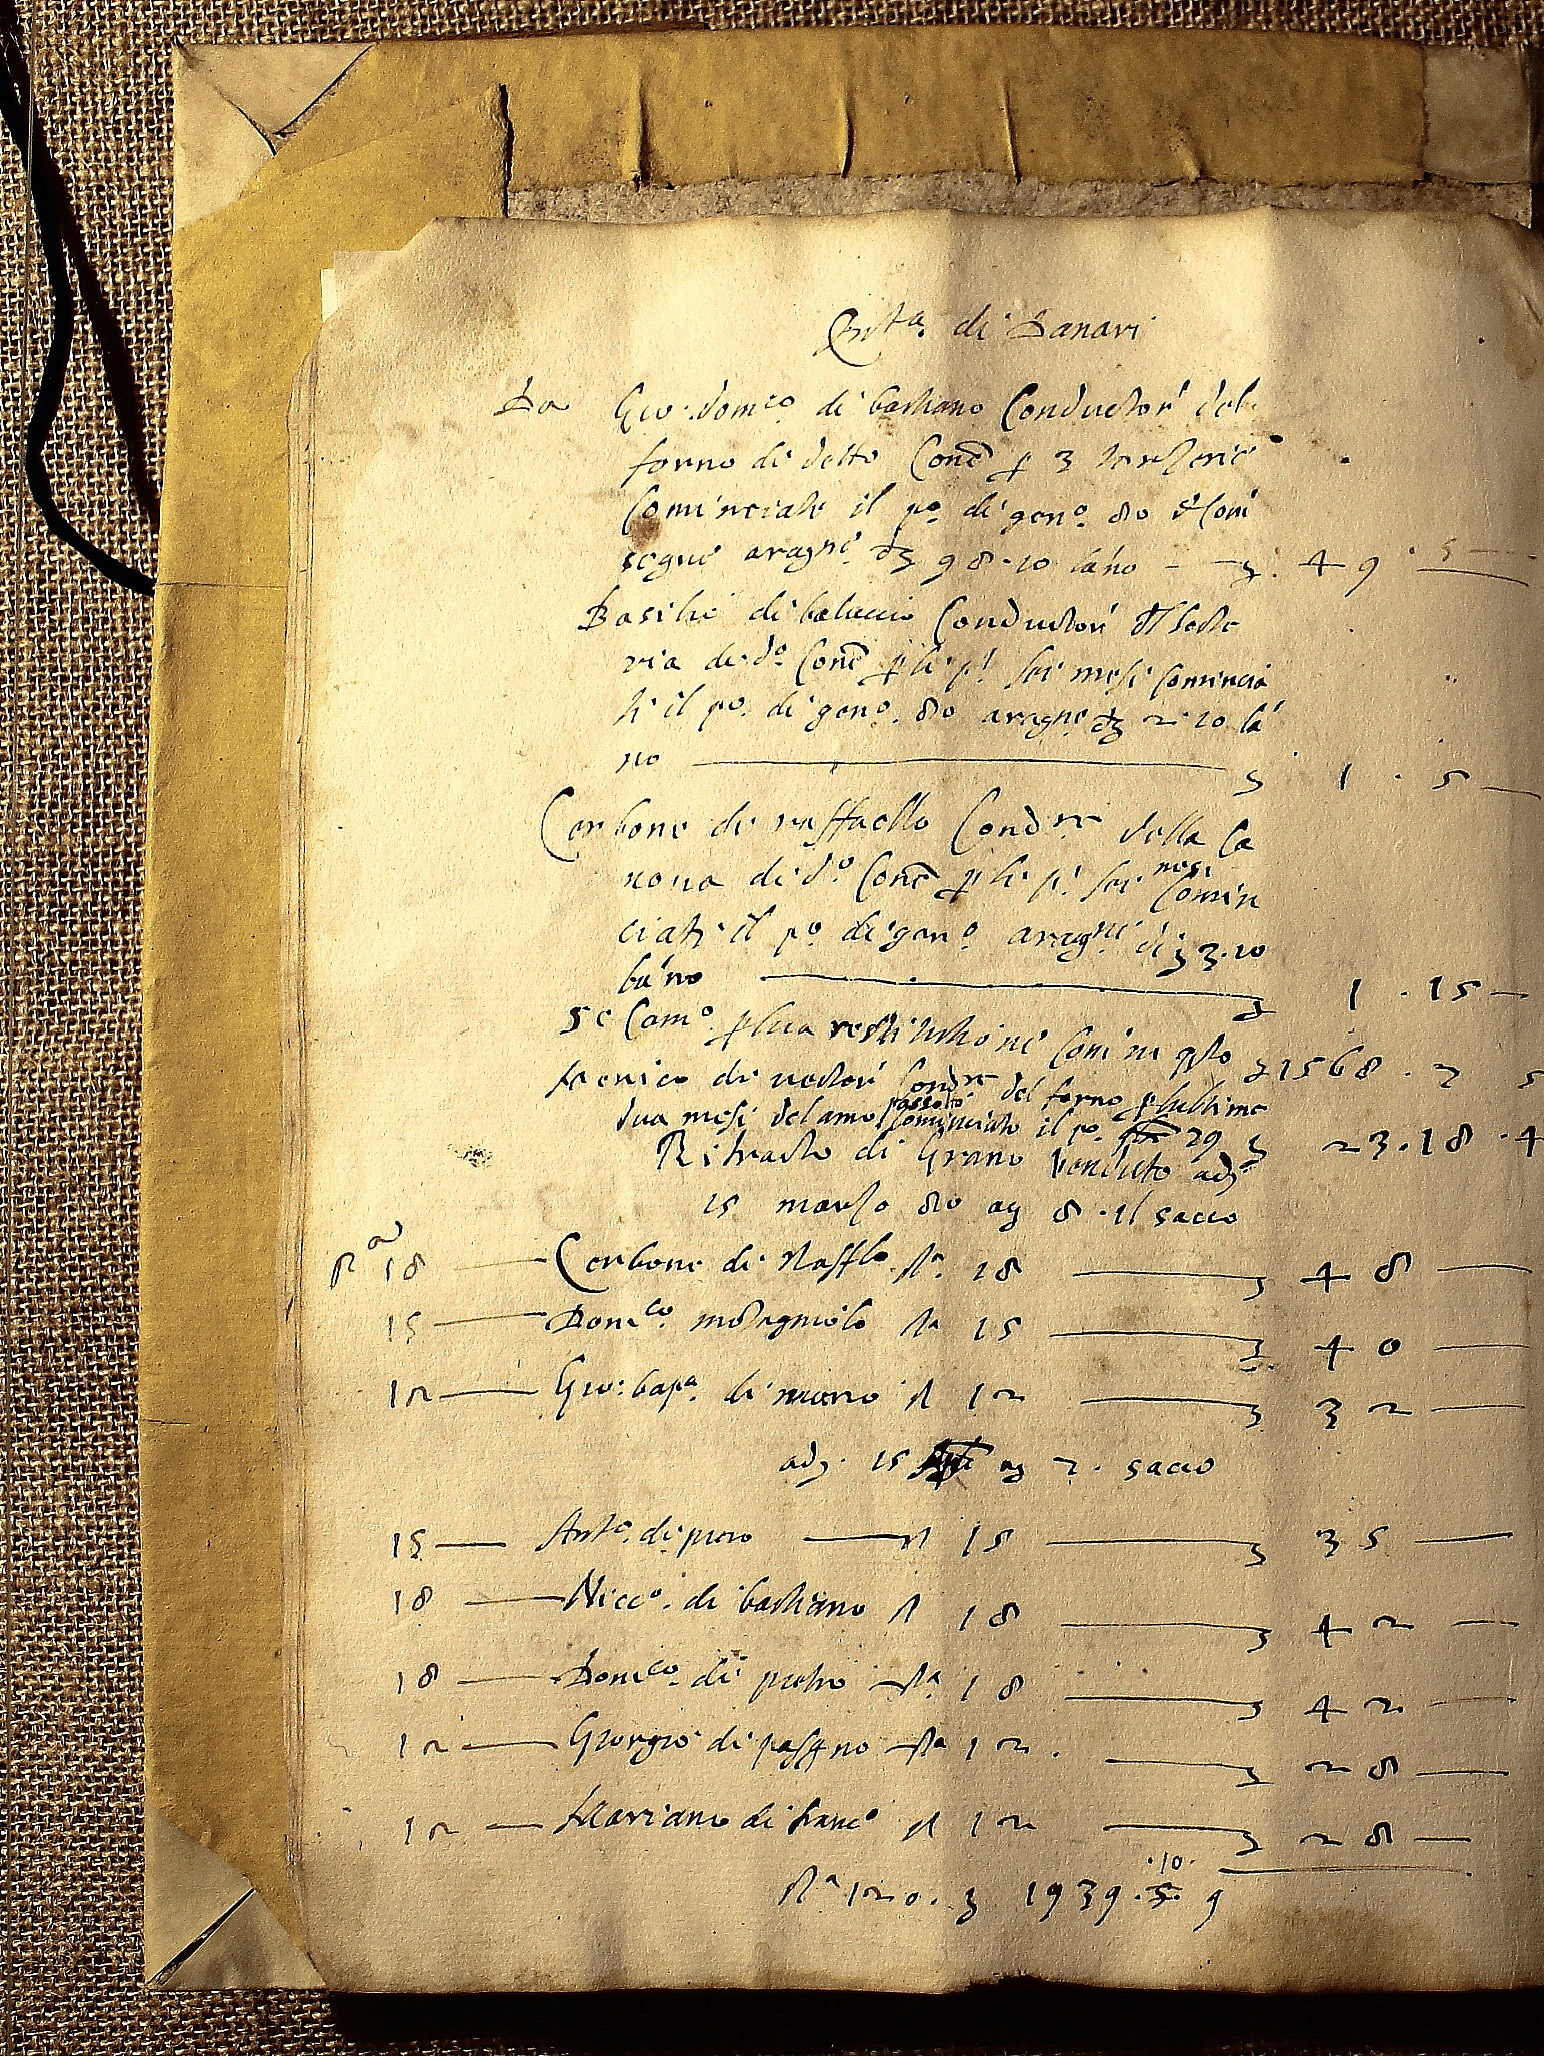 Entta di Danari
Da Gio: domco di bastiano Conductor del
forno di detto Conc p 3 terzerie
Cominciate il po di geno 80 et Com
segue aragne di 98-10 lano - 49 . 5
Basilie di baluccio Conductor dl hoste
ria di do Conc p li pi sei mesi comincia
ti il po di geno 80 aragne di 2 10 la
no 1 . 5
Cerbone di raffaello Condre della Ca
nova di do Conc p li pi sei mesi Comin
ciati il po di geno aragne di 3.10
lano 1 . 15
Se Camo p lua restitutione Comi ni qsto 1568 . 2 5
di nector Condre del forno p lultime
dua mesi del anno passato Cominciato il po 29 23.18.4
Ritracto di Grano Venduto ady
15 marzo 80 ag 8 . il sacco
Ra 18 Cerbone di Rafflo Ra 18 48
15 Domco Ra 15 40
12 Gio: bapa di R 12 32
ady. 15 ag 7. sacco
15 Anto di piero R 15 35
18 Nicco. di bastiano R 18 42
18 Domco di pietro Ra 18 42
12 Giorgio di Ra 12. 28
12 Mariano di franco R 12 28
.10.
Ra 120. 1939.5. 9